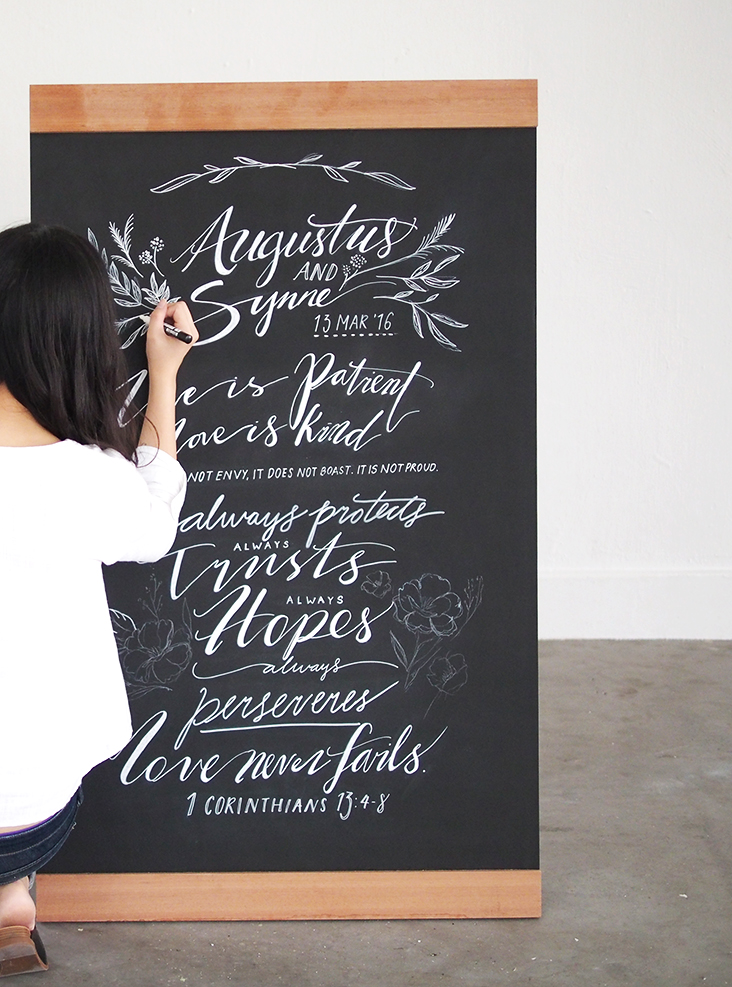 Augustus
AND
Synne
13 MAR '16
is Patient
love is kind
NOT ENVY, IT DOES NOT BOAST. IT IS NOT PROUD.
always protects
ALWAYS
Trusts
ALWAYS
Hopes
always
perseveres
love never fails.
1 CORINTHIANS 13:4-8